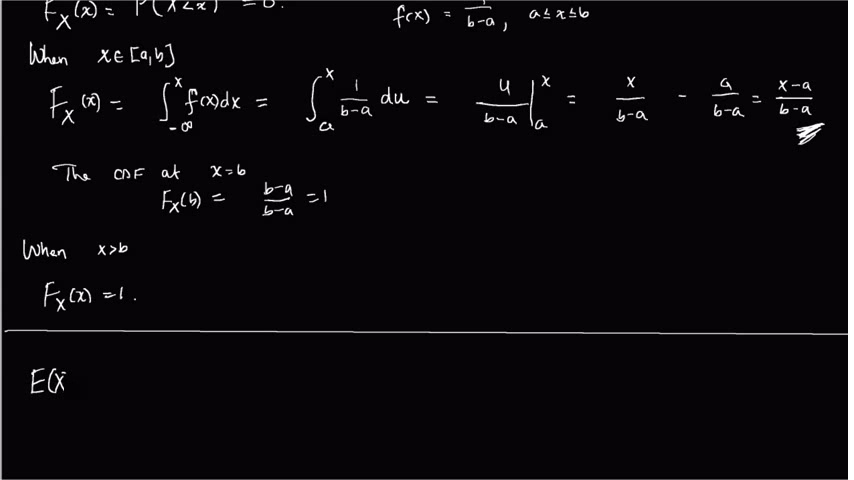 F_X(x) = P(X<x) = 0.
f(x) = 1/(b-a), a≤x≤b
When x∈[a,b]
F_X(x) = ∫_{-∞}^{x} f(x)dx = ∫_a^x 1/(b-a) du = u/(b-a) |_a^x = x/(b-a) - a/(b-a) = (x-a)/(b-a)
The CDF at x=b
F_X(b) = (b-a)/(b-a) = 1
When x>b
F_X(x) = 1.
E(X